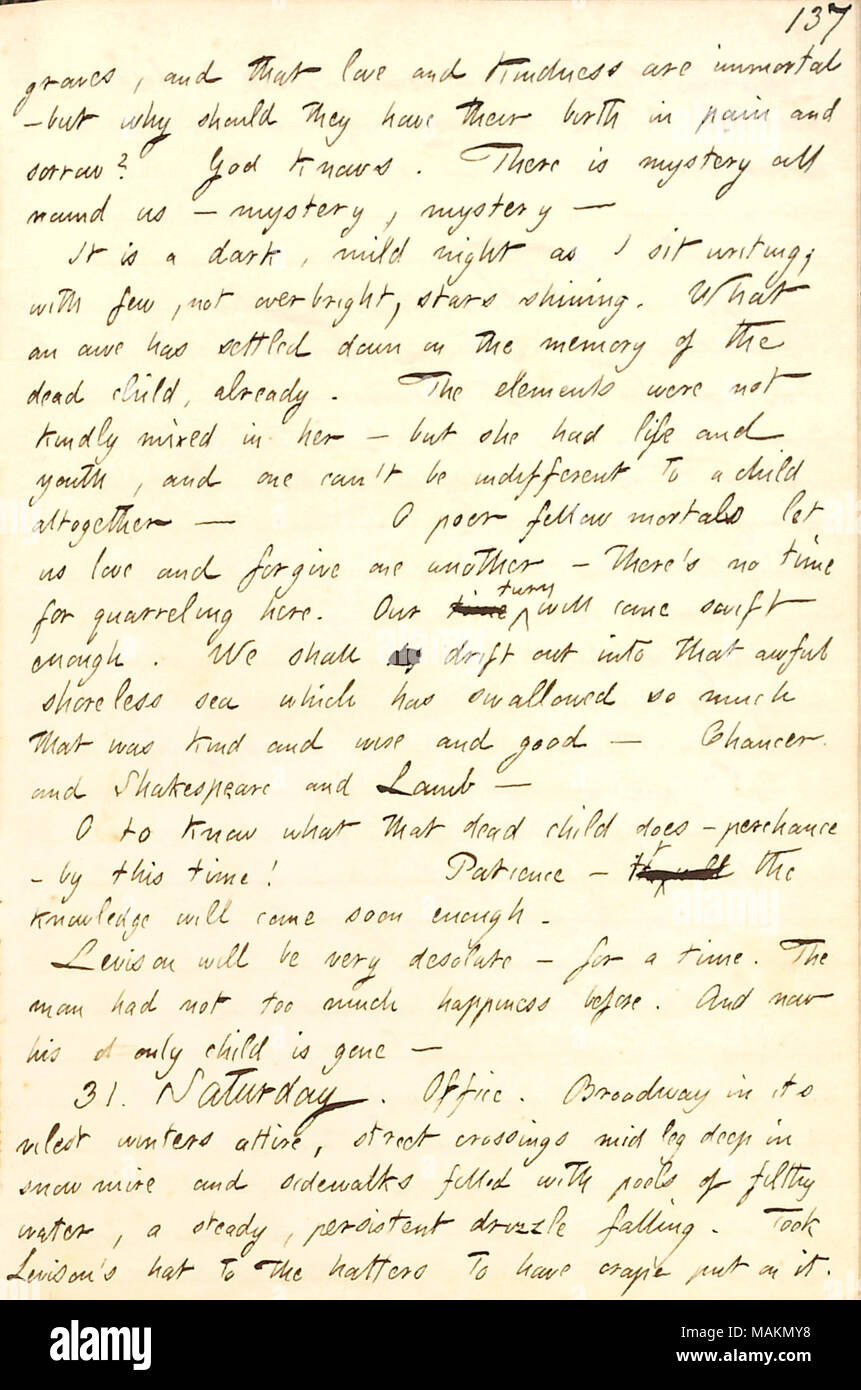 137
graves, and that love and kindness are immortal
-but why should they have their birth in pain and
sorrow? God knows. There is mystery all
round us - mystery, mystery —
It is a dark, mild night as I sit writing,
with few, not overbright, stars shining. What
an awe has settled down on the memory of the
dead child, already. The elements were not
kindly mixed in her - but she had life and
youth, and one can't be indifferent to a child
altogether — O poor fellow mortals let
us love and forgive one another - there's no time
for quarreling here. Our time turn will come swift
enough. We shall drift out into that awful
shoreless sea which has swallowed so much
that was kind and wise and good — Chaucer
and Shakespeare and Lamb —
O to know what that dead child does - perchance
- by this time! Patience - the
knowledge will come soon enough.
Levison will be very desolate - for a time. The
man had not too much happiness before. And now
his only child is gone —
31. Saturday. Office. Broadway in its
vilest winters attire, street crossings mid leg deep in
snow mire and sidewalks filled with pools of filthy
water, a steady, persistent drizzle falling. Took
Levison's hat to the hatters to have crape put on it.
alamy
Image ID: MAKMY8
www.alamy.com